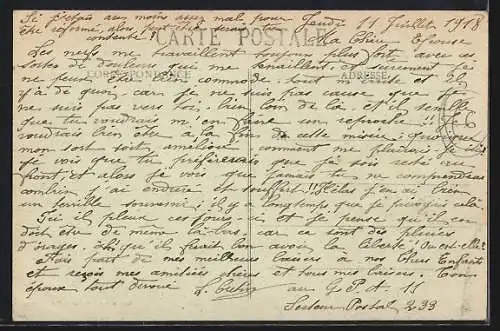 Si j'étais au moins assez mal pour Jeudi 11 Juillet 1918
être réformé, alors peut-être serais-tu
contente! Ma Chère Epouse
CARTE POSTALE
Les nerfs me travaillent toujours plus fort avec ces
sortes de douleurs qui me tenaillent et surement je
CORRESPONDANCE ADRESSE
ne peux être bien commode. tout m'irrite et il
y a de quoi, car je ne suis pas cause que je
ne suis pas vers toi; bien loin de là et il semble
que tu voudrais m'en faire un reproche!! Je
voudrais bien être à la fin de cette misère; que
mon sort soit amélioré, comment me plaindre je
je vois que tu préfèrerais que je sois resté au
front et alors je vois que jamais tu ne comprendras
combien j'ai enduré et souffert!! Hélas j'en ai bien
un terrible souvenir; il y a longtemps que je
Ici il pleut ces jours-ci et je pense qu'il en
doit être de même là-bas, car ce sont des pluies
d'orages. Ah! qu'il ferait bon avoir la liberté! Où est-elle?
Fais part de mes meilleurs baisers à nos Chers Enfants
et reçois mes amitiés chères et tous mes baisers. Ton
époux tout dévoué au G.P. et 11
Secteur Postal 233